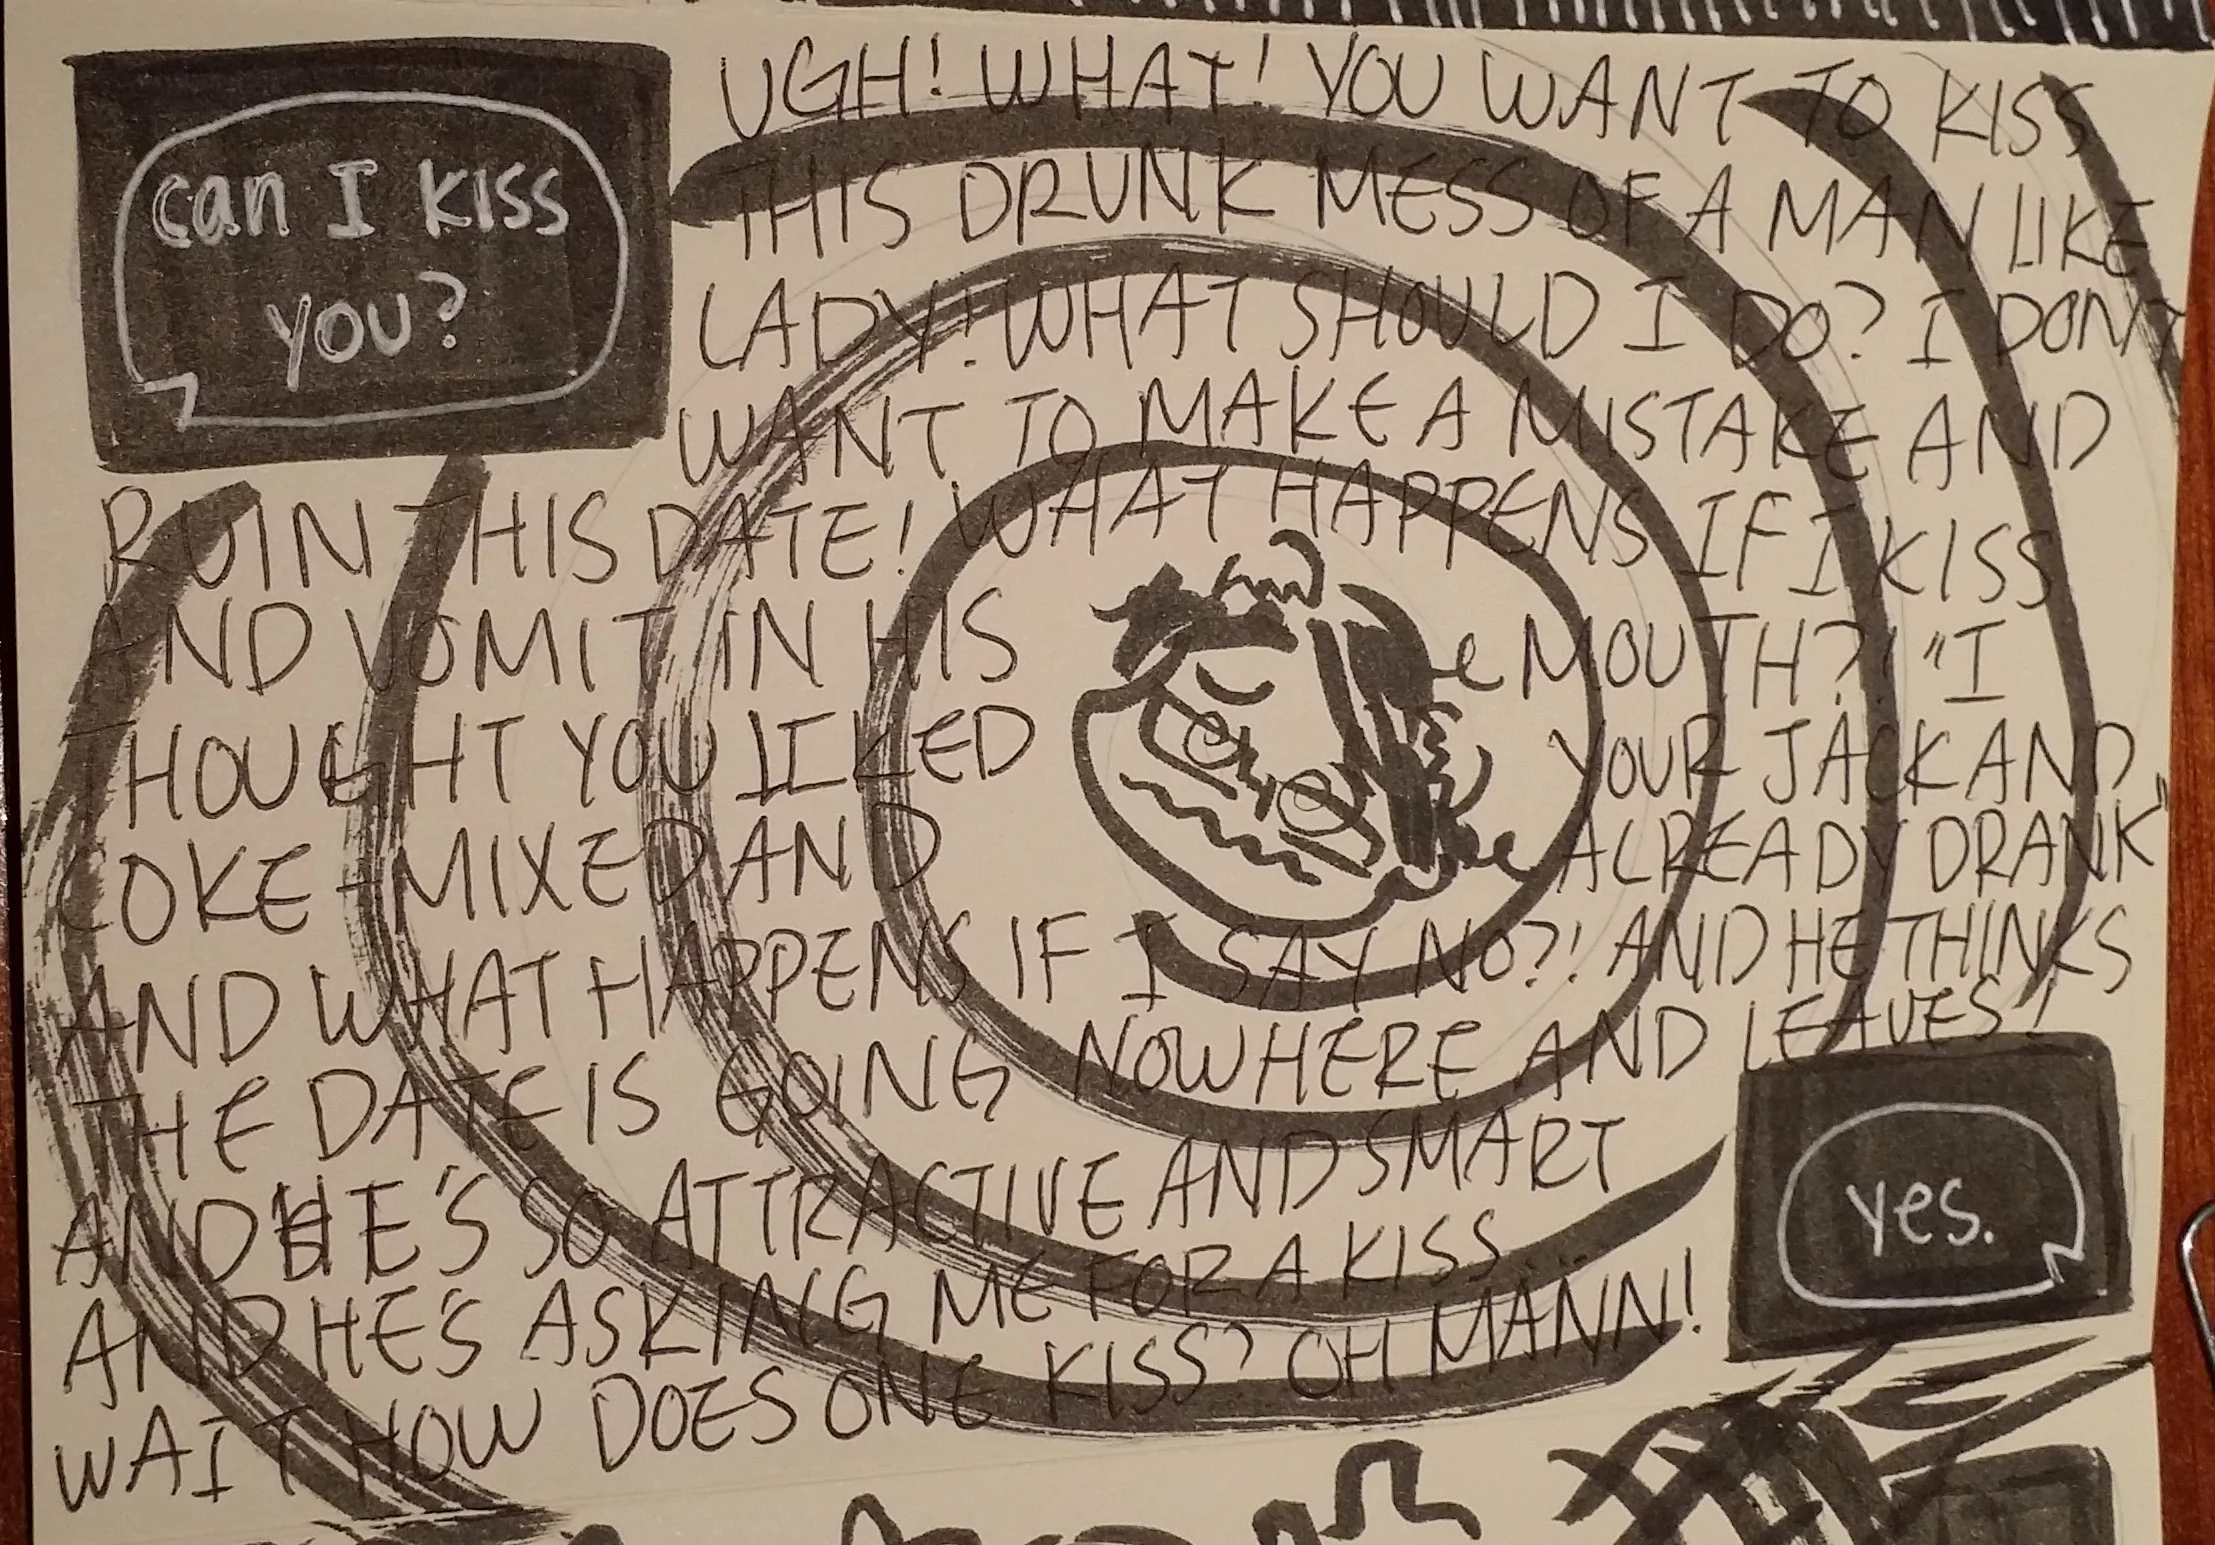 can I kiss
you?
UGH! WHAT! YOU WANT TO KISS
THIS DRUNK MESS OF A MAN LIKE
LADY! WHAT SHOULD I DO? I DON'T
WANT TO MAKE A MISTAKE AND
RUIN THIS DATE! WHAT HAPPENS IF I KISS
AND VOMIT IN HIS MOUTH?! "I
THOUGHT YOU LIKED YOUR JACK AND
COKE - MIXED AND ALREADY DRANK"
AND WHAT HAPPENS IF I SAY NO?! AND HE THINKS
THE DATE IS GOING NOWHERE AND LEAVES!
AND HE'S SO ATTRACTIVE AND SMART
AND HE'S ASKING ME FOR A KISS...
WAIT HOW DOES ONE KISS? OH MANN!
yes.